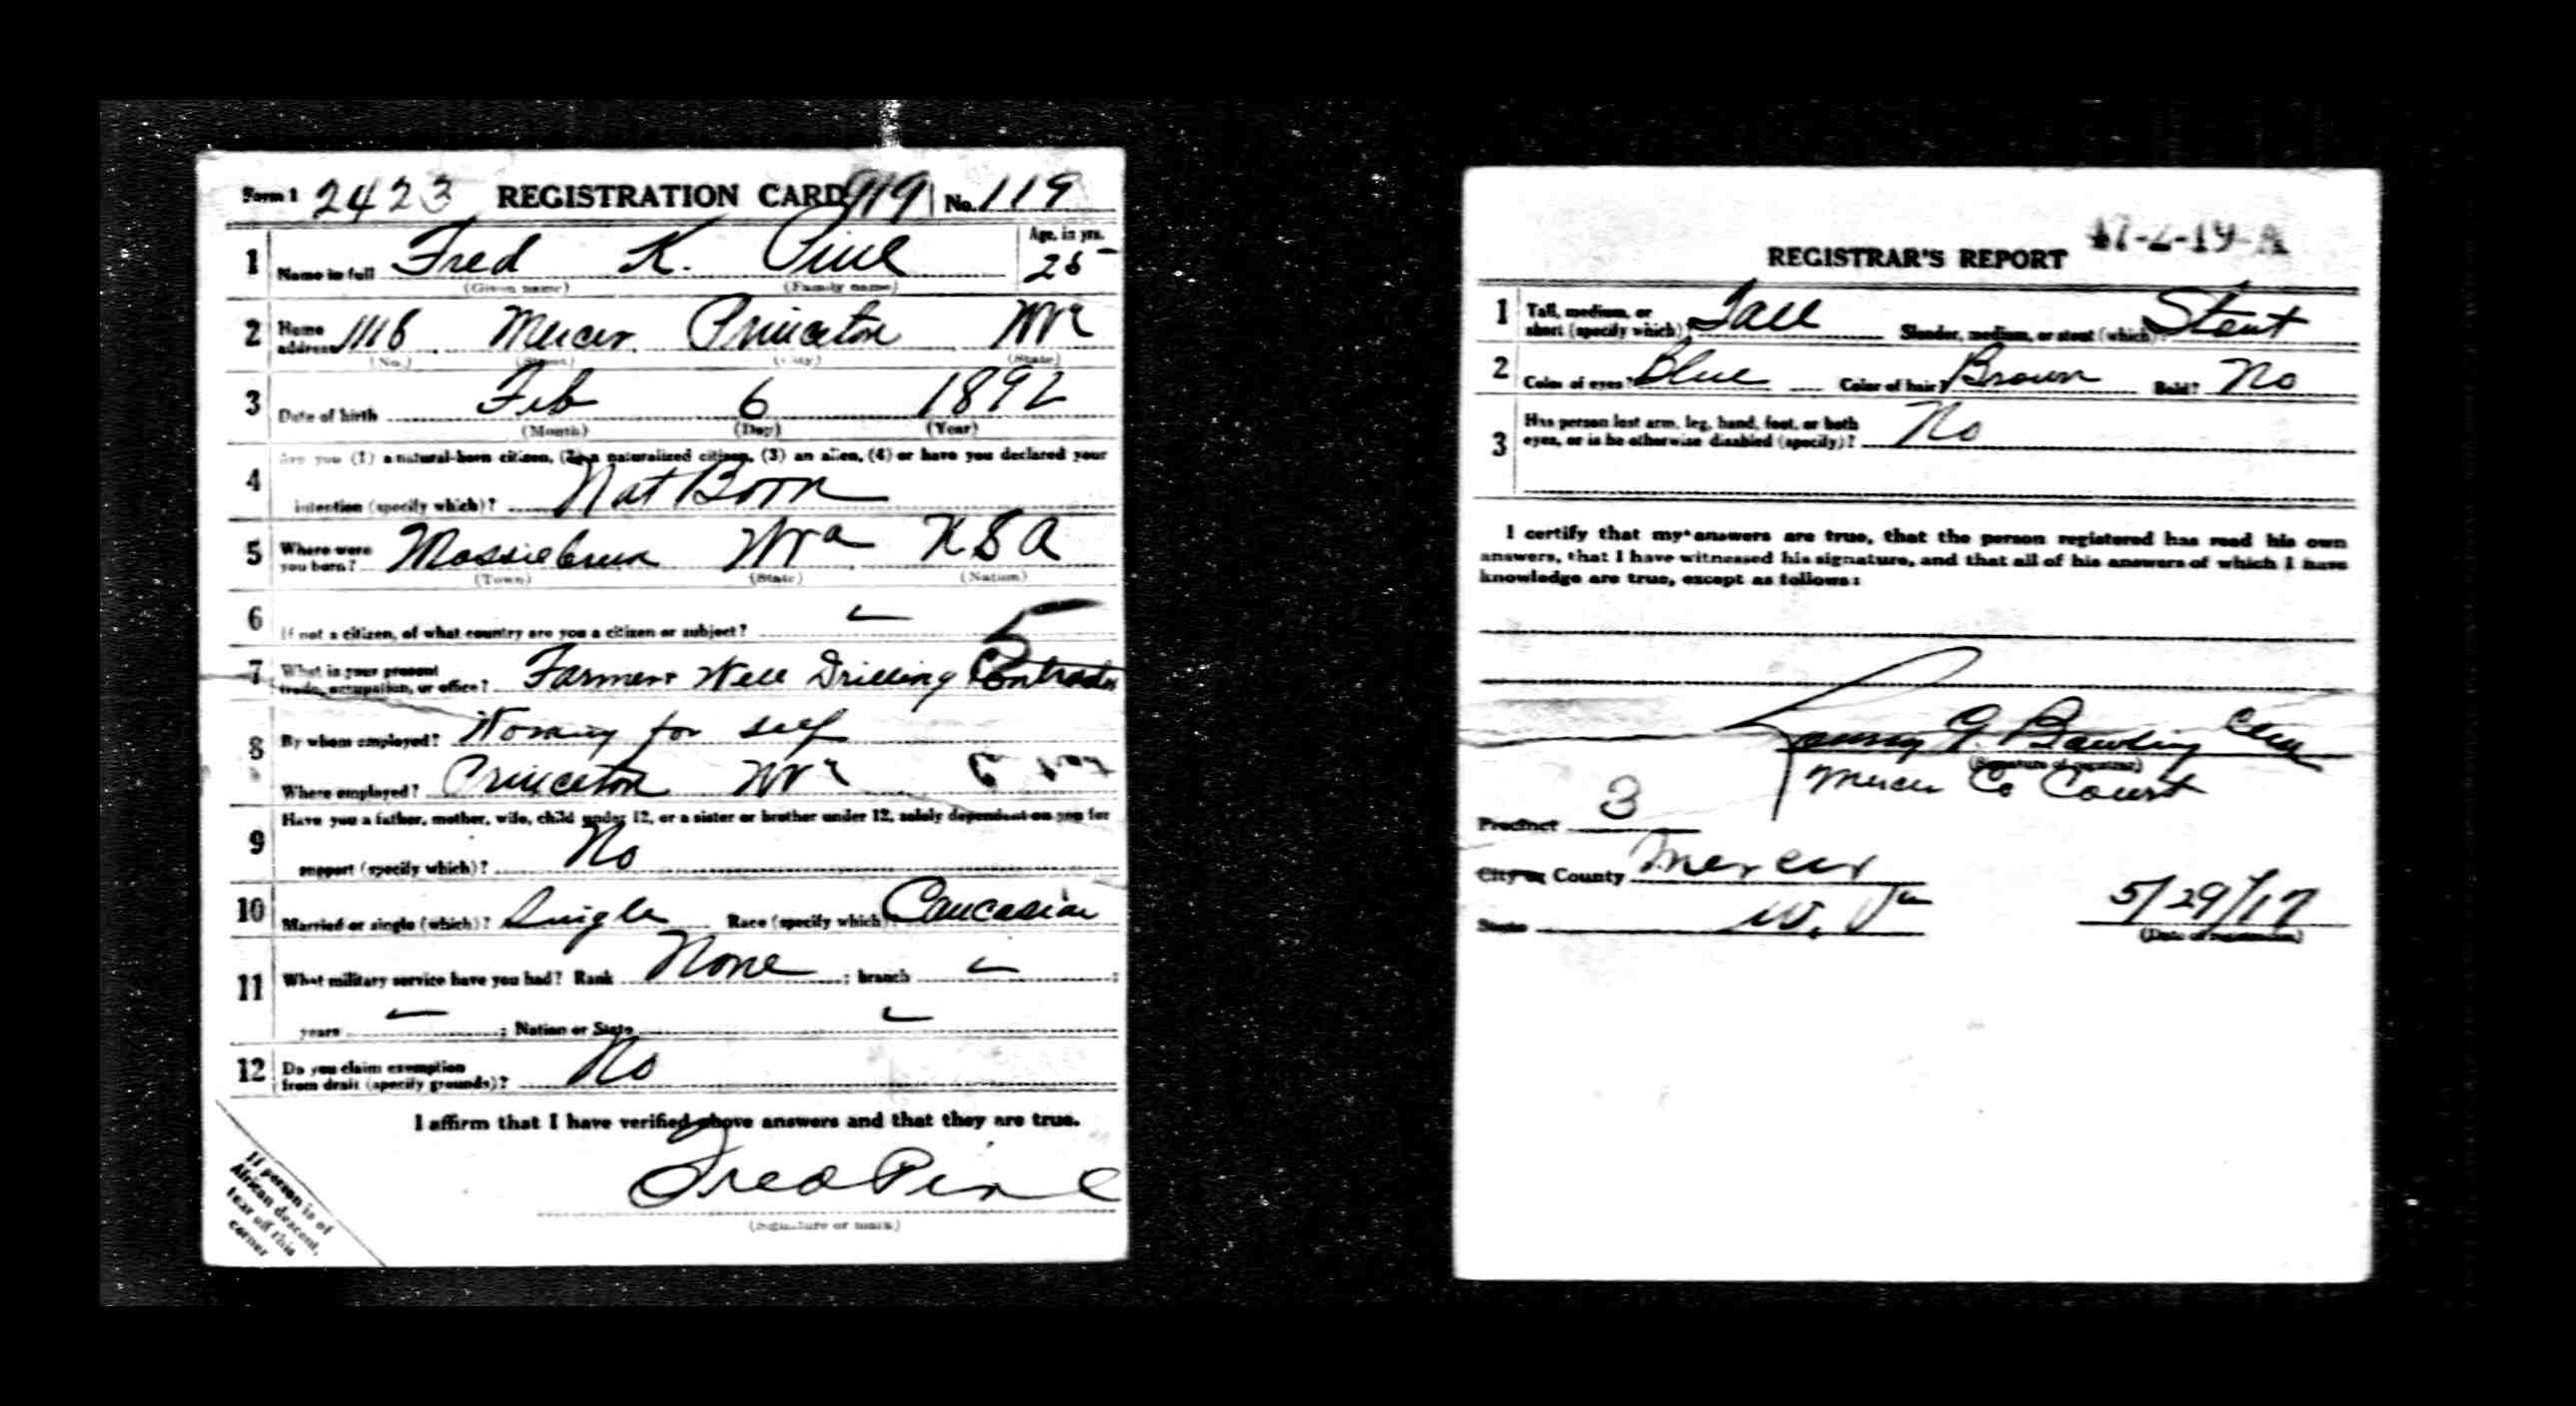 Form 1 2423 REGISTRATION CARD 119 No. 119
1 Name in full Fred K. Pine Age, in yrs. 25
(Given name) (Family name)
2 Home address 1118 Mercer Princeton WVa
(No.) (Street) (City) (State)
3 Date of birth Feb 6 1892
(Month) (Day) (Year)
4 Are you (1) a natural-born citizen, (2) a naturalized citizen, (3) an alien, (4) or have you declared your
intention (specify which)? Nat Born
5 Where were you born? WVa USA
(Town) (State) (Nation)
6 If not a citizen, of what country are you a citizen or subject?
7 What is your present trade, occupation, or office? Farmer Well Drilling Contractor
8 By whom employed? for self
Where employed? Princeton WVa
9 Have you a father, mother, wife, child under 12, or a sister or brother under 12, solely dependent on you for
support (specify which)? No
10 Married or single (which)? Single Race (specify which)? Caucasian
11 What military service have you had? Rank None ; branch ;
years ; Nation or State
12 Do you claim exemption from draft (specify grounds)? No
I affirm that I have verified above answers and that they are true.
Fred Pine
(Signature or mark)
If person is of
African descent,
tear off this
corner
REGISTRAR'S REPORT
1 Tall, medium, or short (specify which)? Tall Slender, medium, or stout (which)? Stout
2 Color of eyes? Blue Color of hair? Brown Bald? No
3 Has person lost arm, leg, hand, foot, or both
eyes, or is he otherwise disabled (specify)? No
I certify that my answers are true, that the person registered has read his own
answers, that I have witnessed his signature, and that all of his answers of which I have
knowledge are true, except as follows:
G. Bowling Clerk
(Signature of registrar)
Mercer Co Court
Precinct 3
City or County Mercer
State W. Va 5/29/17
(Date of registration)